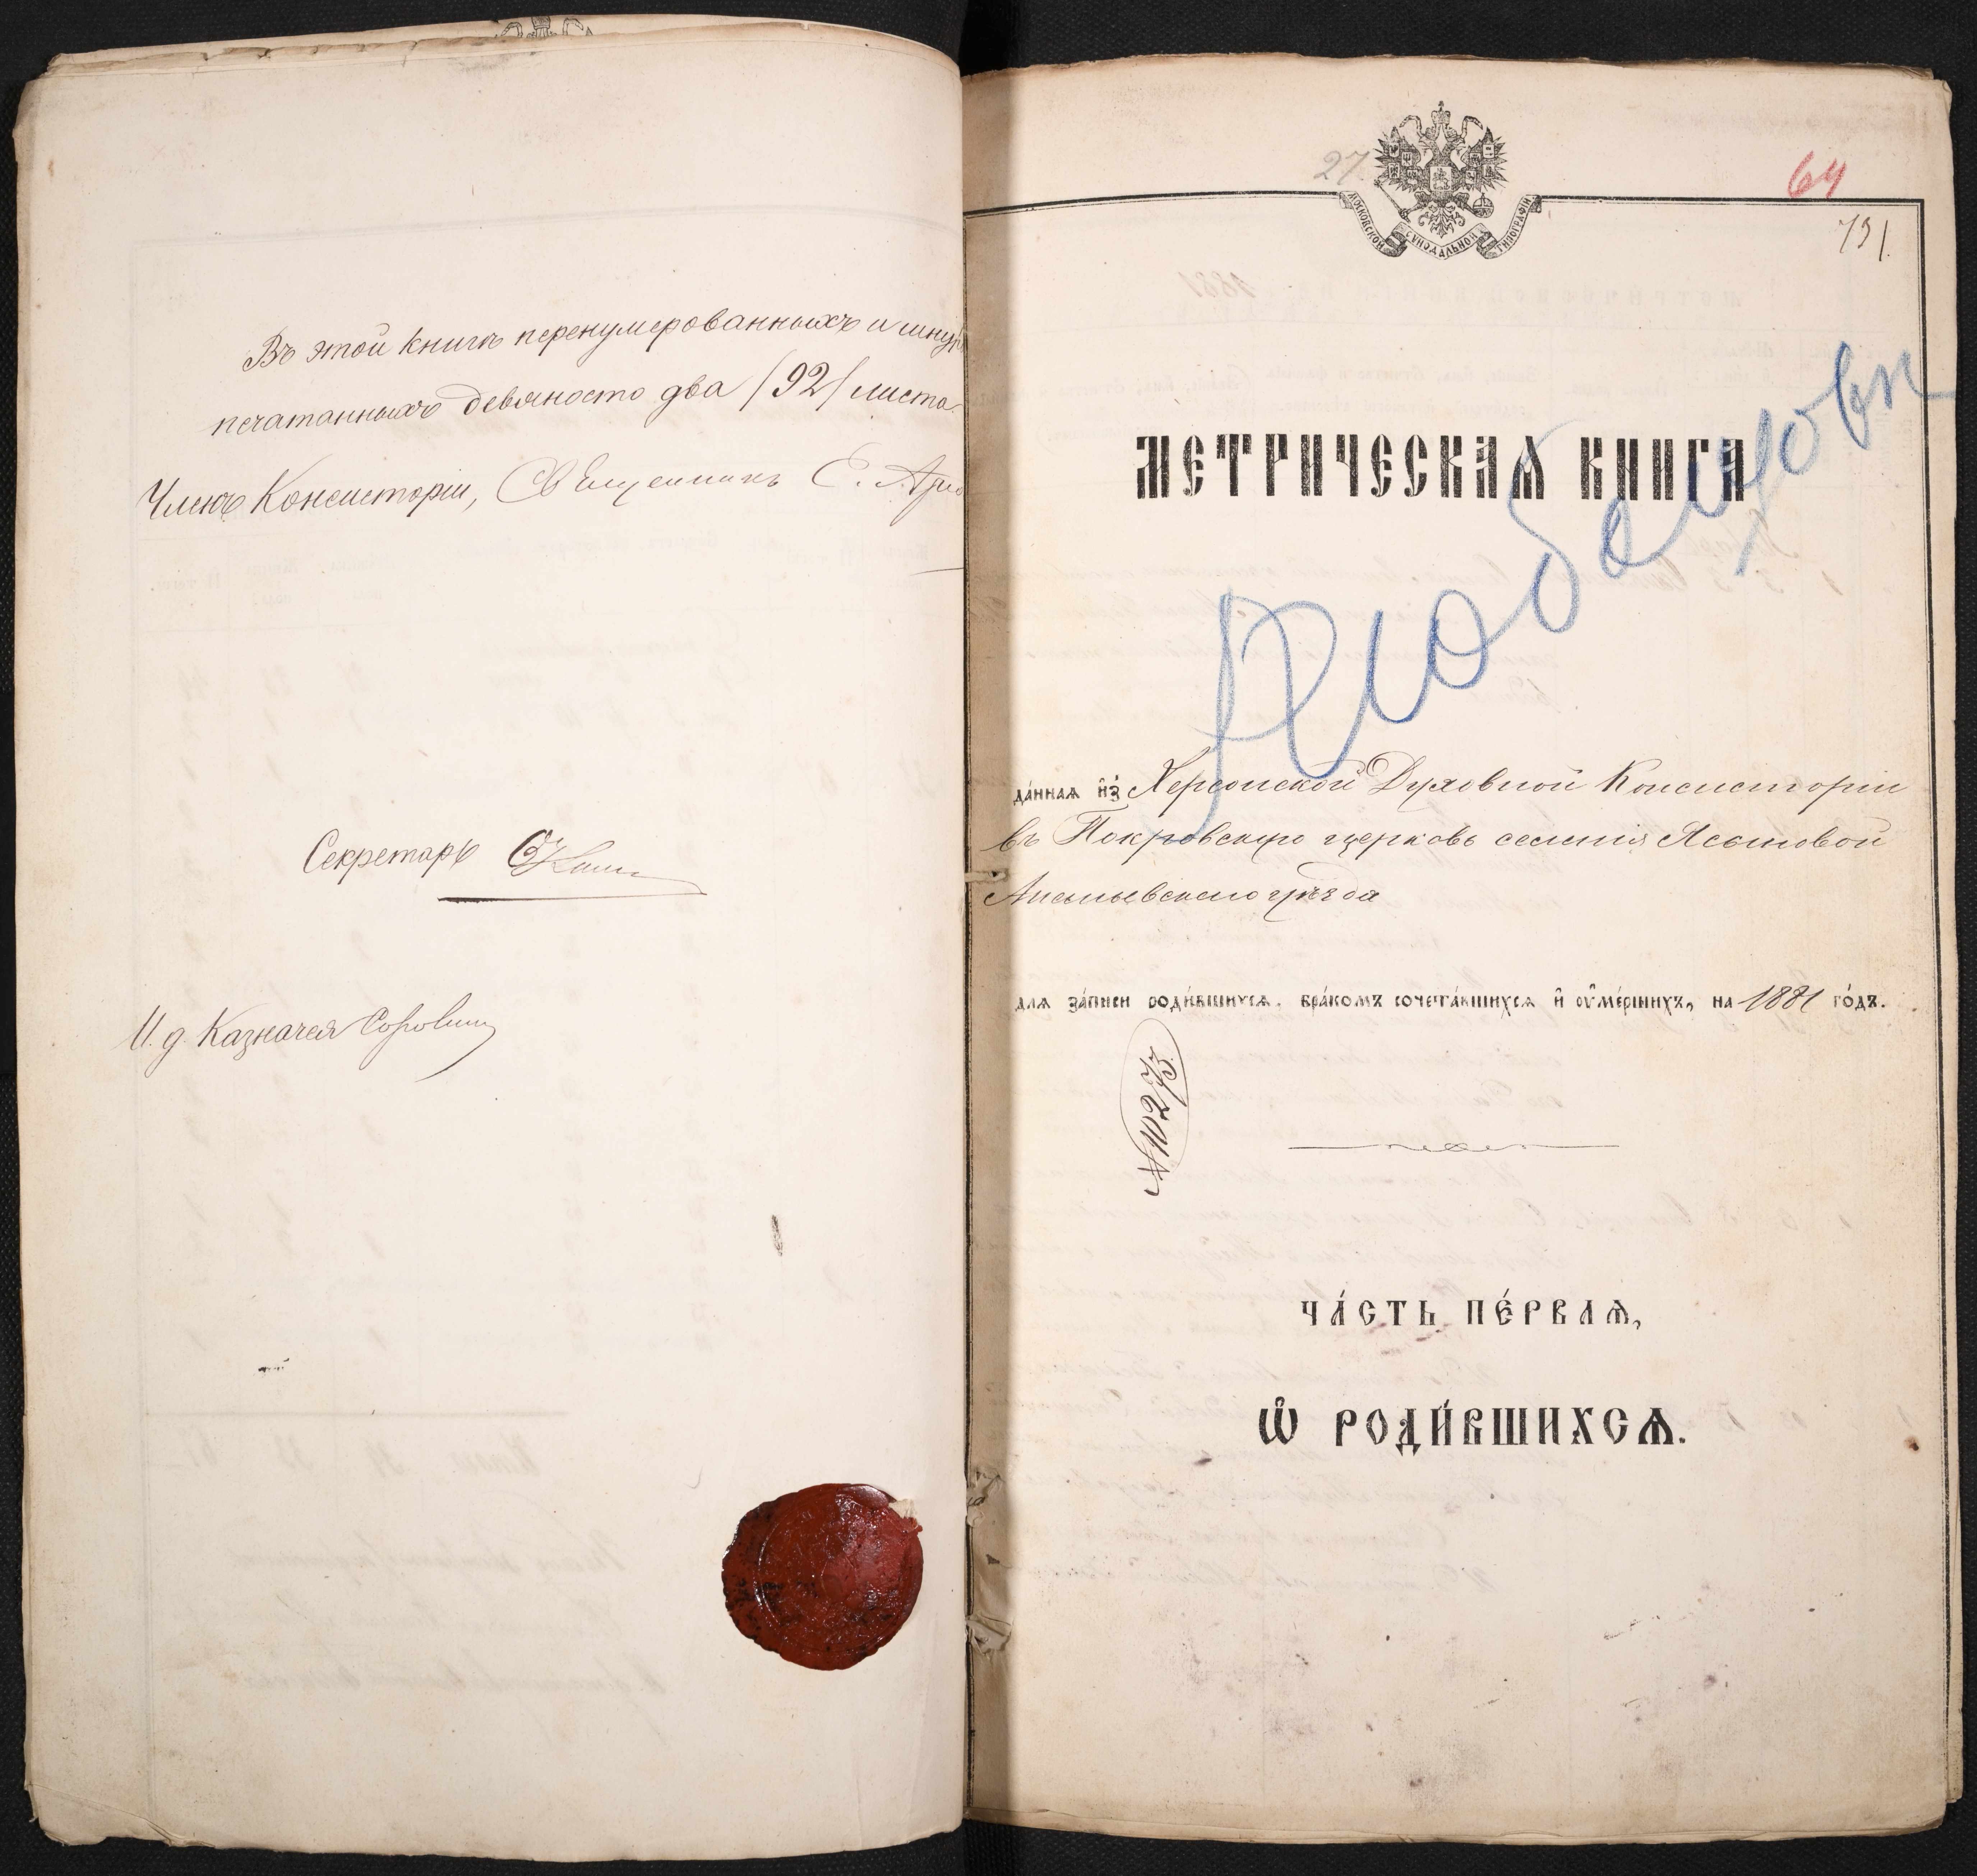 Въ этой книгѣ перенумерованныхъ и шнур
печатанныхъ девяносто два /92/ листа.
Членъ Консисторіи, Священникъ Е.
Секретарь
И. д. Казначея
27.
64
МОСКОВСКОЙ СѴНОДАЛЬНОЙ ТИПОГРАФІИ
731.
МЕТРИЧЕСКАѦ КНИГА
да́ннаѧ и҆з̾ Херсонской Духовной Консисторіи
въ Покровскую церковь селенія Ясыновой
Ананьевскаго уѣзда
длѧ за́писи роди́вшихсѧ, бра́комъ сочета́вшихсѧ и҆ ᲂу҆ме́ршихъ, на 1881 го́дъ.
№ 10273.
ЧА́СТЬ ПЕ́РВАѦ,
Ѽ РОДИ́ВШИХСѦ.